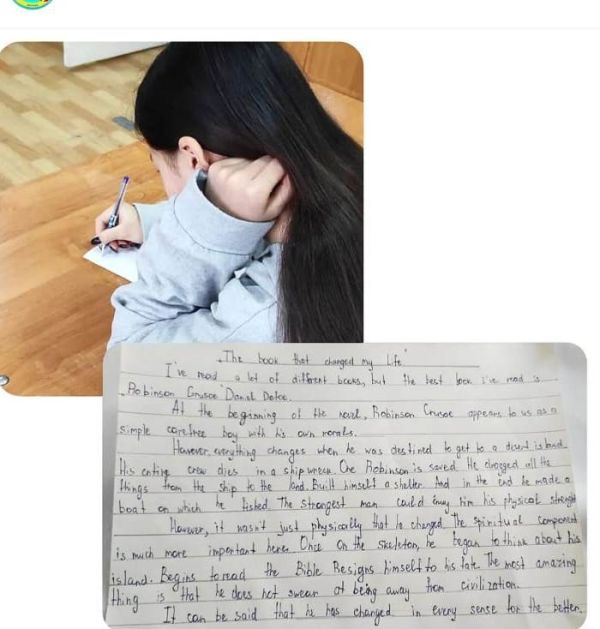 „The book that changed my life"
I've read a lot of different books, but the best book i've read is
„Robinson Crusoe" Daniel Defoe.
At the beginning of the novel, Robinson Crusoe appears to us as a
simple carefree boy with his own morals.
However, everything changes when he was destined to get to a desert island.
His entire crew dies in a ship wreck. One Robinson is saved. He dragged all the
things from the ship to the land. Built himself a shelter. And in the end he made a
boat on which he fished. The strongest man could envy him his physical strenght
However, it wasn't just physically that he changed. The spiritual component
is much more important here. Once On the skeleton, he began to think about his
island. Begins to read the Bible Resigns himself to his fate. The most amazing
thing is that he does not swear at being away from civilization.
It can be said that he has changed in every sense for the better.